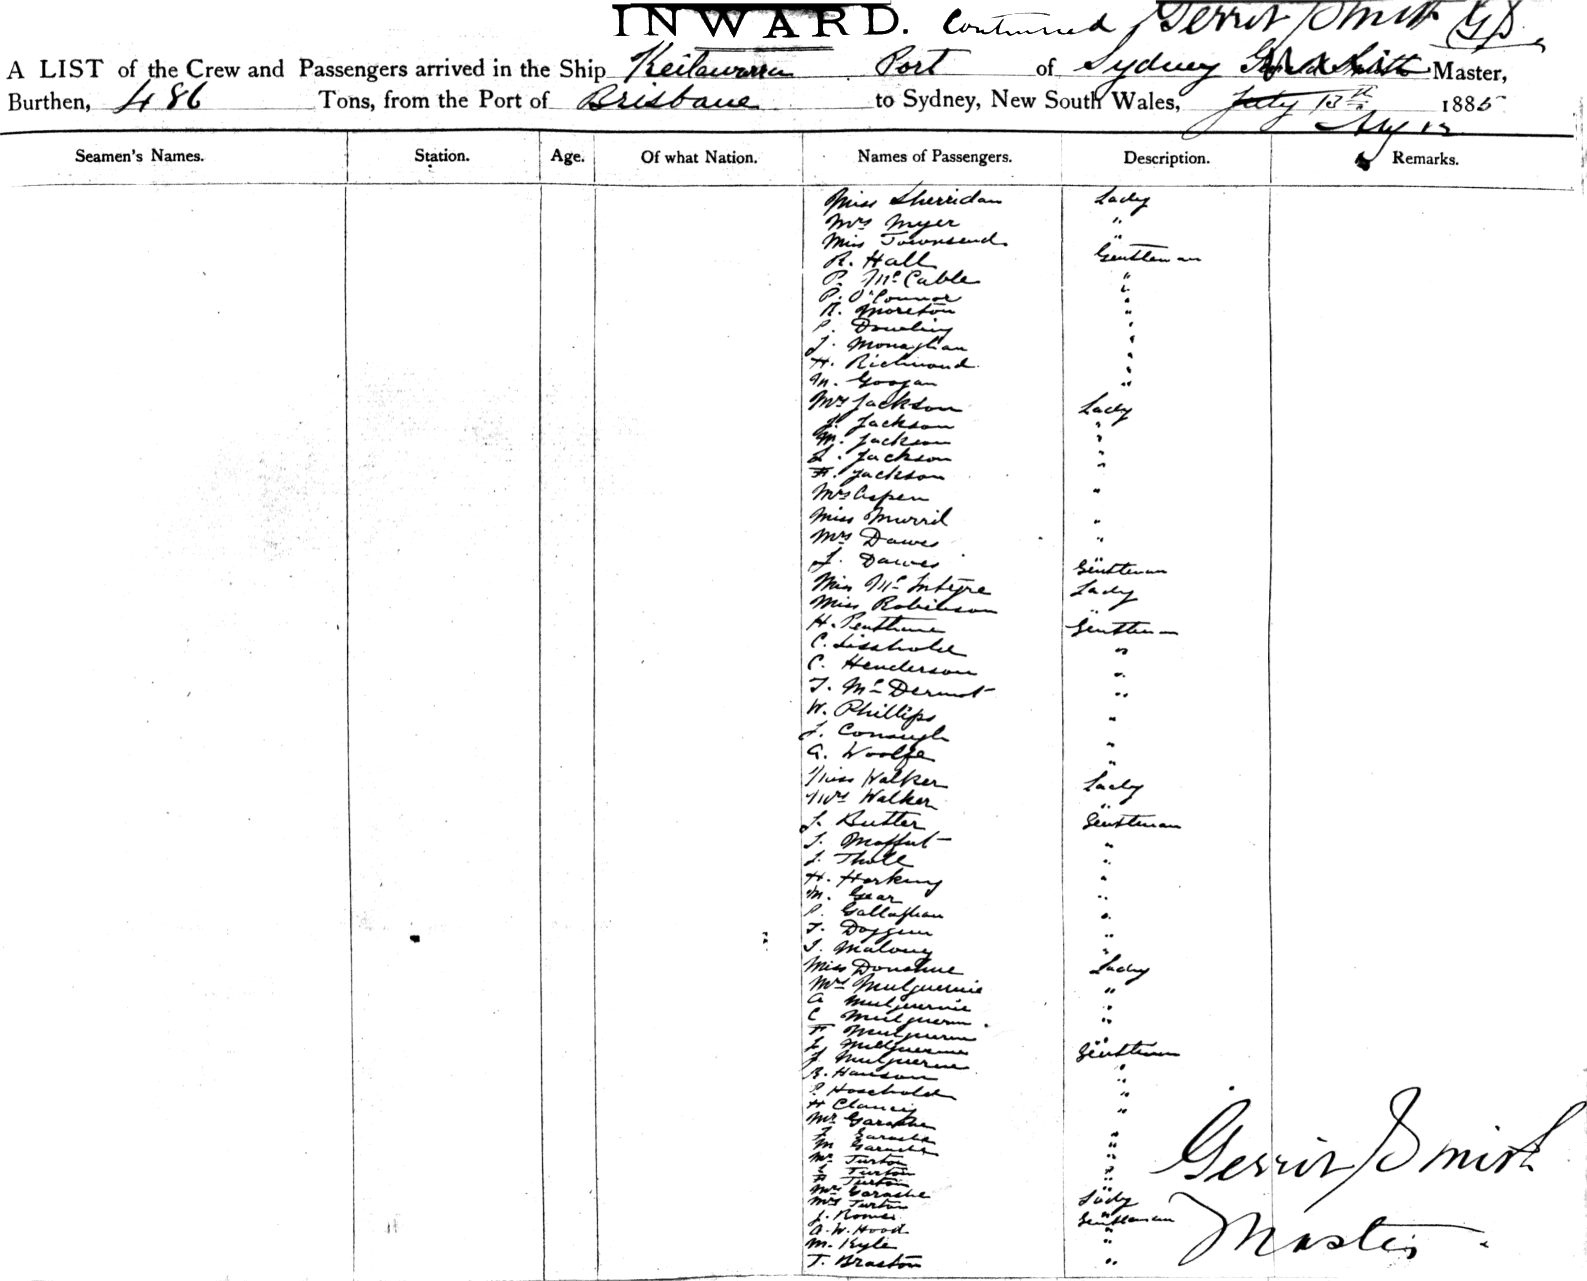 INWARD. Continued Gerrit Smith
A LIST of the Crew and Passengers arrived in the Ship Keilawarra Port of Sydney Master,
Burthen, 486 Tons, from the Port of Brisbane to Sydney, New South Wales, July 13th 1885
Seamen's Names. Station. Age. Of what Nation. Names of Passengers. Description. Remarks.
Miss Sherridan Lady
Mrs Myer "
Miss Townsend "
R. Hall Gentleman
P. McCable "
P. O'Connor "
R. Moreton "
P. Dowling "
J. Monaghan "
H. Richmond "
M. Googan "
Mrs Jackson Lady
J. Jackson "
M. Jackson "
L. Jackson "
F. Jackson "
Mrs Aspen "
Miss Murril "
Mrs Dawes "
J. Dawes Gentleman
Miss McIntyre Lady
Miss Robinson "
H. Gentleman
C. "
C. Henderson "
T. McDermot "
W. Phillips "
J. "
G. Woolfe "
Miss Walker Lady
Mrs Walker "
J. Butler Gentleman
J. Moffat "
J. Tholl "
H. "
M. Gear "
P. Gallaghan "
T. "
J. Malony "
Miss Donahue Lady
Mrs Mulquernie "
A Mulquernie "
C Mulquern "
F Mulquern "
L Mulquerne Gentleman
J Mulquerne "
R. Hanson "
P. Household "
H Clancy "
Mr Garashe "
J Garashe "
M Garashe "
Mr Turton "
L Turton "
F Turton "
Mrs Garashe Lady
Mrs Turton "
J. Gentleman
A. W. Hood "
M. Kyle "
T. Braston "
Gerrit Smith
Master